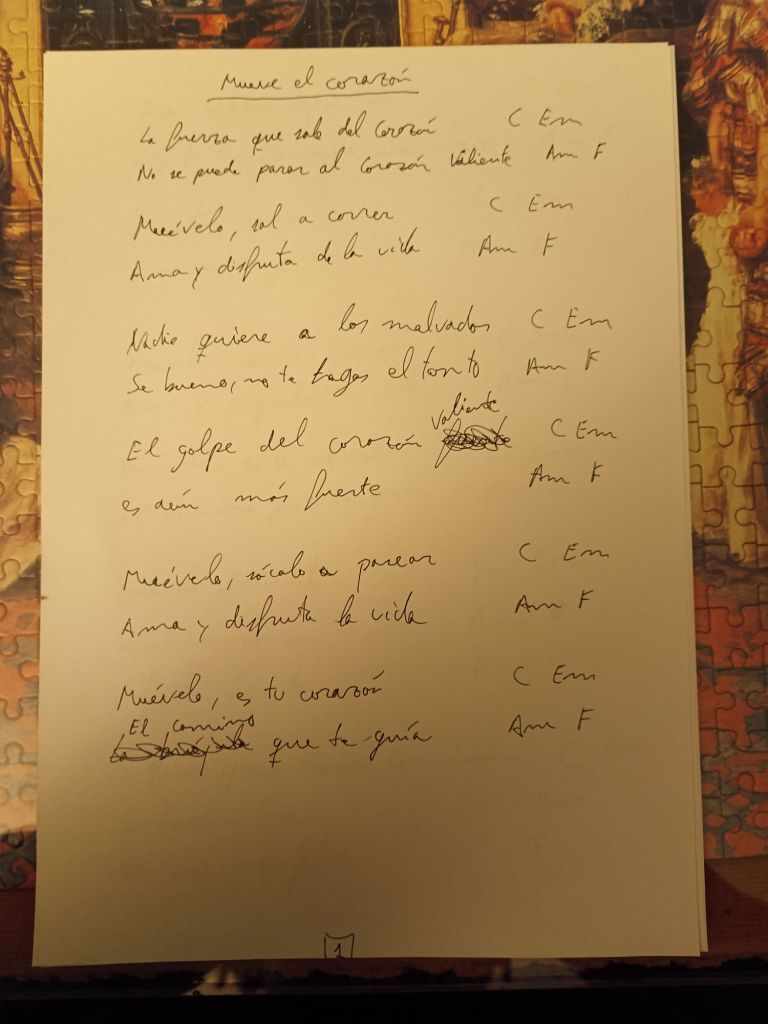 Mueve el corazón
La fuerza que sale del corazón C Em
No se puede parar al corazón valiente Am F
Muévelo, sal a correr C Em
Ama y disfruta de la vida Am F
Nadie quiere a los malvados C Em
Se bueno, no te hagas el tonto Am F
El golpe del corazón valiente C Em
es aún más fuerte Am F
Muévelo, sácalo a pasear C Em
Ama y disfruta la vida Am F
Muévelo, es tu corazón C Em
El camino que te guía Am F
1